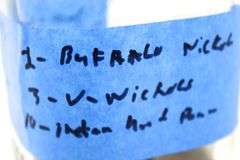 1- BUFFALO Nickel
3- V- Nickels
10- Indian Head Penn